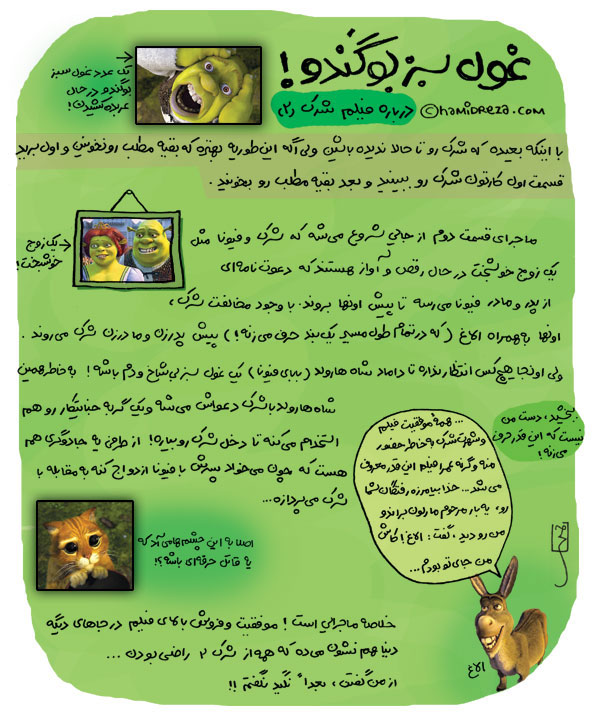 غول سبز بوگندو!
درباره فیلم شرک ۲
©hamidreza.com
یک عدد غول سبز
بوگندو در حال
عربده کشیدن!
با اینکه بعیده که شرک رو تا حالا ندیده باشین ولی اگه این طوریه بهتره که بقیه مطلب رو نخونین و اول برید
قسمت اول کارتون شرک رو ببینید و بعد بقیه مطلب رو بخونید.
ماجرای قسمت دوم از جایی شروع می‌شه که شرک و فیونا مثل
یک زوج خوشبخت در حال رقص و آواز هستند که دعوت نامه‌ای
از پدر و مادر فیونا می‌رسه تا پیش اونها بروند. با وجود مخالفت شرک،
اونها به همراه الاغ (که در تمام طول مسیر یک بند حرف می‌زنه!) پیش پدرزن و مادرزن شرک می‌روند.
ولی اونجا هیچ کس انتظار نداره تا داماد شاه هارولد (بابای فیونا) یک غول سبز بی شاخ و دم باشه! به خاطر همین
شاه هارولد با شرک دعواش می‌شه و یک گربه جنایتکار رو هم
استخدام می‌کنه تا دخل شرک رو بیاره! از طرفی یه جادوگری هم
هست که چون می‌خواد پسرش با فیونا ازدواج کنه به مقابله با
شرک می‌پردازه...
یک زوج
خوشبخت!
ببخشید، دست من
نیست که این قدر حرف
می‌زنه!
... همهٔ موفقیت فیلم
و شهرت شرک به خاطر حضور
منه وگرنه عمرا فیلم این قدر معروف
می‌شد... خدا بیامرزه رفتگان شما
رو، یه بار مرحوم مارلون براندو
من رو دید، گفت: الاغ! کاش
من جای تو بودم...
اصلا به این چشم‌ها می‌آد که
یه قاتل حرفه‌ای باشه؟!
الاغ
خلاصه ماجرایی است! موفقیت و فروش بالای فیلم در جاهای دیگه
دنیا هم نشون می‌ده که همه از شرک ۲ راضی بودن...
از من گفتن، بعداً نگید نگفتم!!